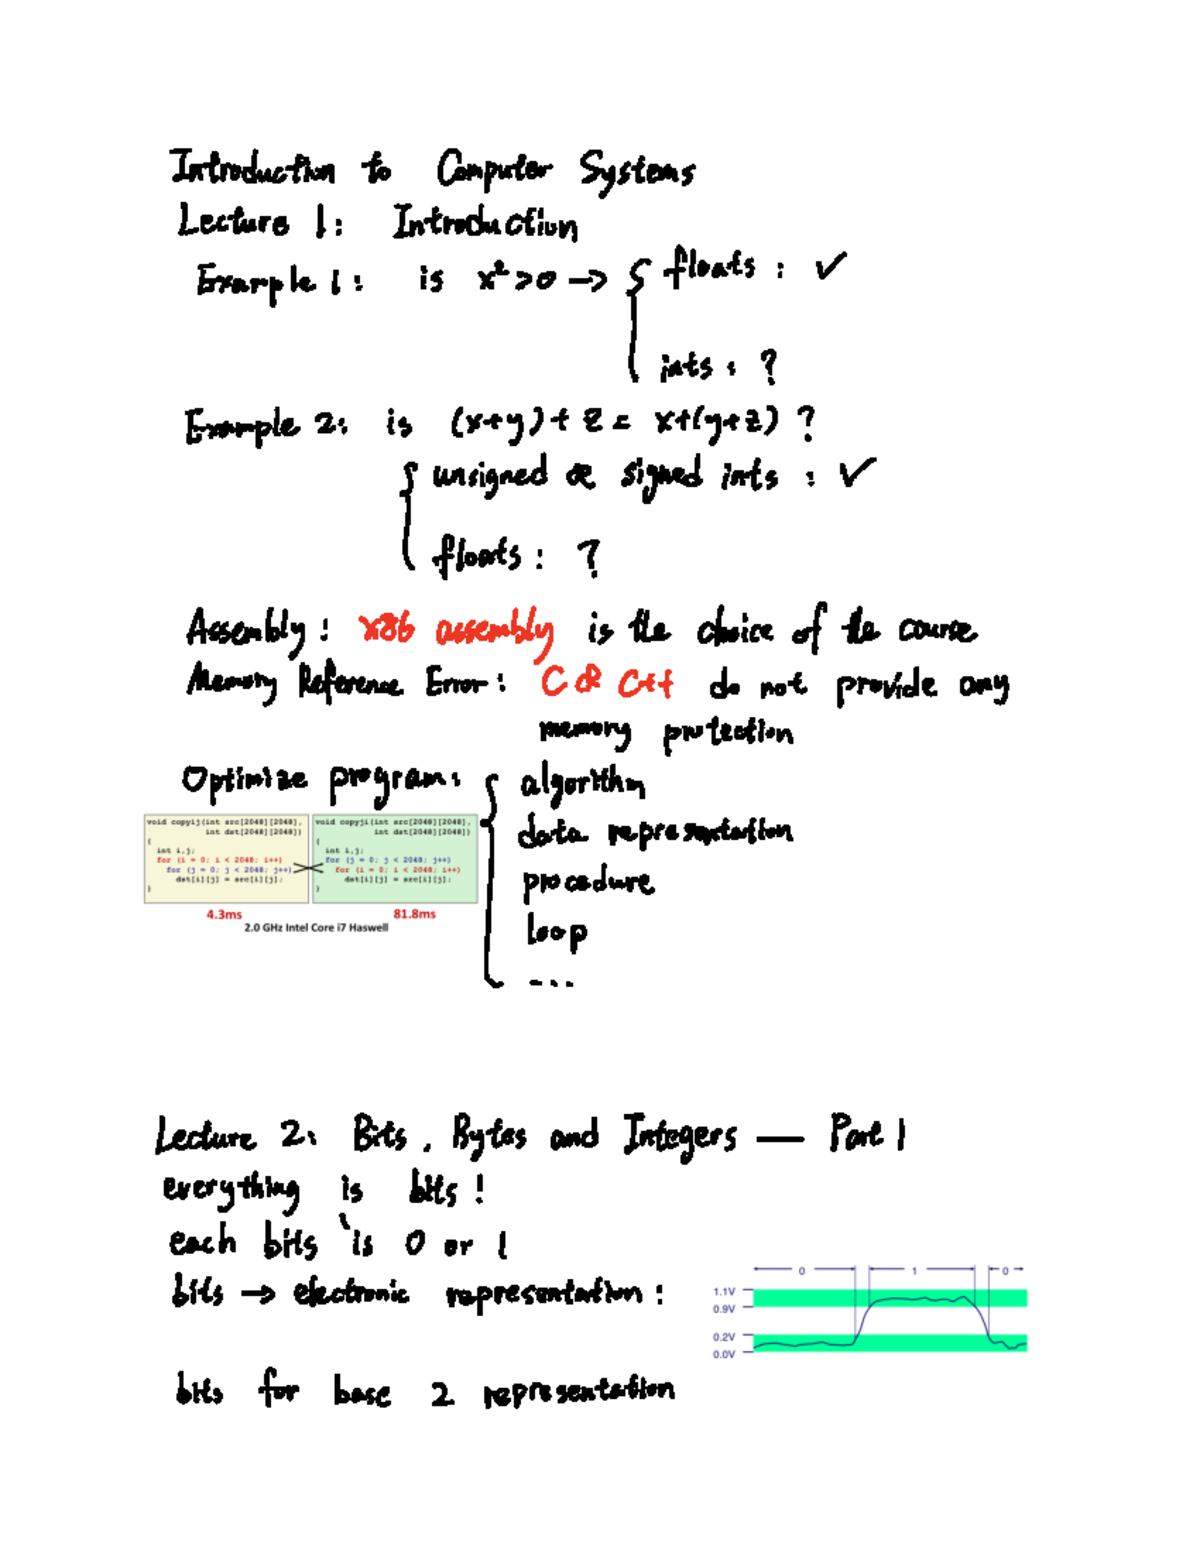 Introduction to Computer Systems
Lecture 1: Introduction
Example 1: is x²>0 → { floats : ✓
ints : ?
Example 2: is (x+y)+z = x+(y+z) ?
{ unsigned & signed ints : ✓
floats : ?
Assembly : x86 assembly is the choice of the course
Memory Reference Error : C & C++ do not provide any
memory protection
Optimize program: { algorithm
data representation
procedure
loop
...
void copyij(int src[2048][2048],
int dst[2048][2048])
{
int i,j;
for (i = 0; i < 2048; i++)
for (j = 0; j < 2048; j++)
dst[i][j] = src[i][j];
}
4.3ms
void copyji(int src[2048][2048],
int dst[2048][2048])
{
int i,j;
for (j = 0; j < 2048; j++)
for (i = 0; i < 2048; i++)
dst[i][j] = src[i][j];
}
81.8ms
2.0 GHz Intel Core i7 Haswell
Lecture 2: Bits, Bytes and Integers — Part 1
everything is bits !
each bits is 0 or 1
bits → electronic representation :
0 1 0
1.1V
0.9V
0.2V
0.0V
bits for base 2 representation